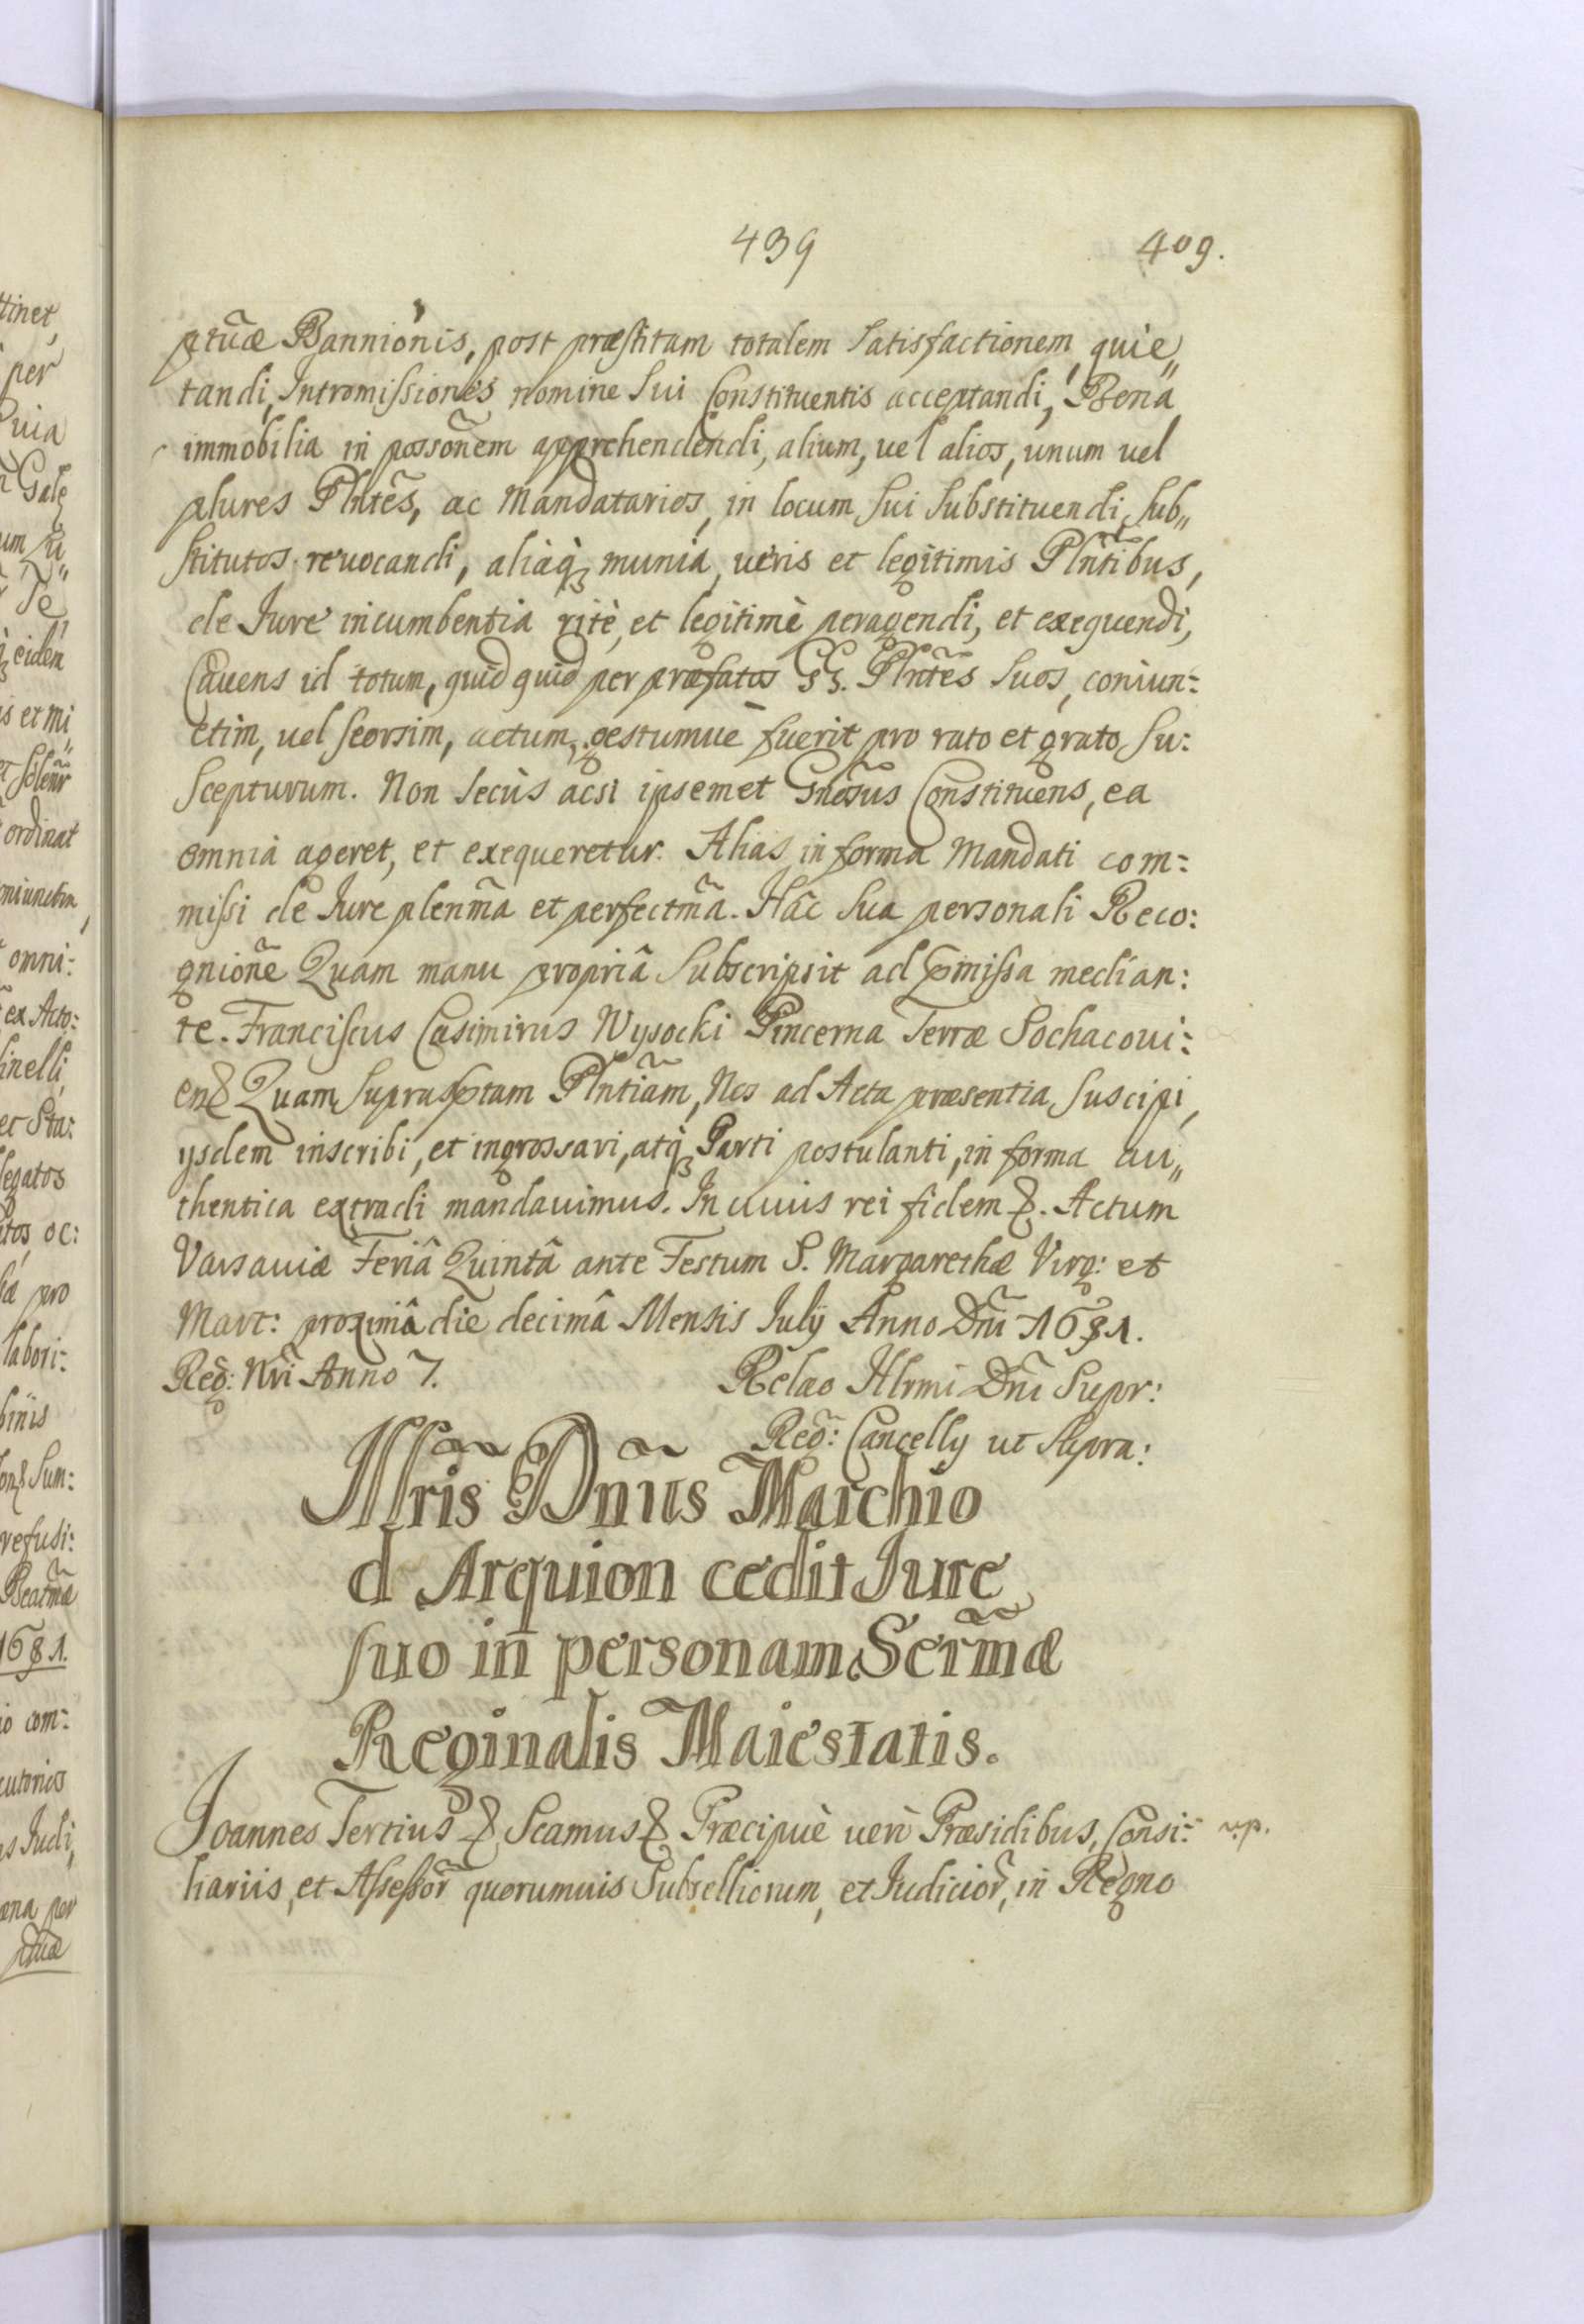 439 409.
ptũæ Bannionis, post præstitam totalem Satisfactionem, quie„
tandi, Intromissiones nomine Sui Constituentis acceptandi, Bona
immobilia in possoñem apprehendendi, alium, vel alios, unum vel
plures Plñtes, ac Mandatarios, in locum Sui Substituendi, Sub„
stitutos revocandi, aliaq; munia, veris et legitimis Plñtibus,
de Jure incumbentia ritè, et legitimè peragendi, et exequendi,
Cavens id totum, quidquid per præfatos GG. Plñtes Suos, coniun:
ctim, vel seorsim, actum, gestumvè fuerit pro rato et grato su:
Scepturum. Non Secùs acsi ipsemet Gñosus Constituens, ea
omnia ageret, et exequeretur. Alias in forma Mandati com:
missi de Jure plenm̃a et perfectm̃a. Hâc Sua personali Reco:
gnioñe Quam manu propriâ Subscripsit ad pmissa median:
te. Franciscus Casimirus Wysocki Pincerna Terræ Sochacovi:
en& Quam Suprasptam Plñtiam, Nos ad Acta præsentia, Suscipi,
ysdem inscribi, et ingrossari, atq; Parti postulanti, in forma au„
thentica extradi mandavimus. In cuius rei fidem &. Actum
Varsaviæ Feriâ Quintâ ante Festum S. Margarethæ Virg: et
Mart: proximâ die decimâ Mensis July Anno Dñi 1681.
Reg: Nri Anno 7. Relao Illrmi Dñi Supr:
Reg: Cancelly ut Supra:
Illris Dñus Marchio
d Arquion cedit Jure
suo in personam Serm̃æ
Reginalis Maiestatis.
Joannes Tertius & Scamus & Præcipuè verò Præsidibus, Consi:
liariis, et Assessor̃ quorumvis Subselliorum, et Judicior̃, in Regno